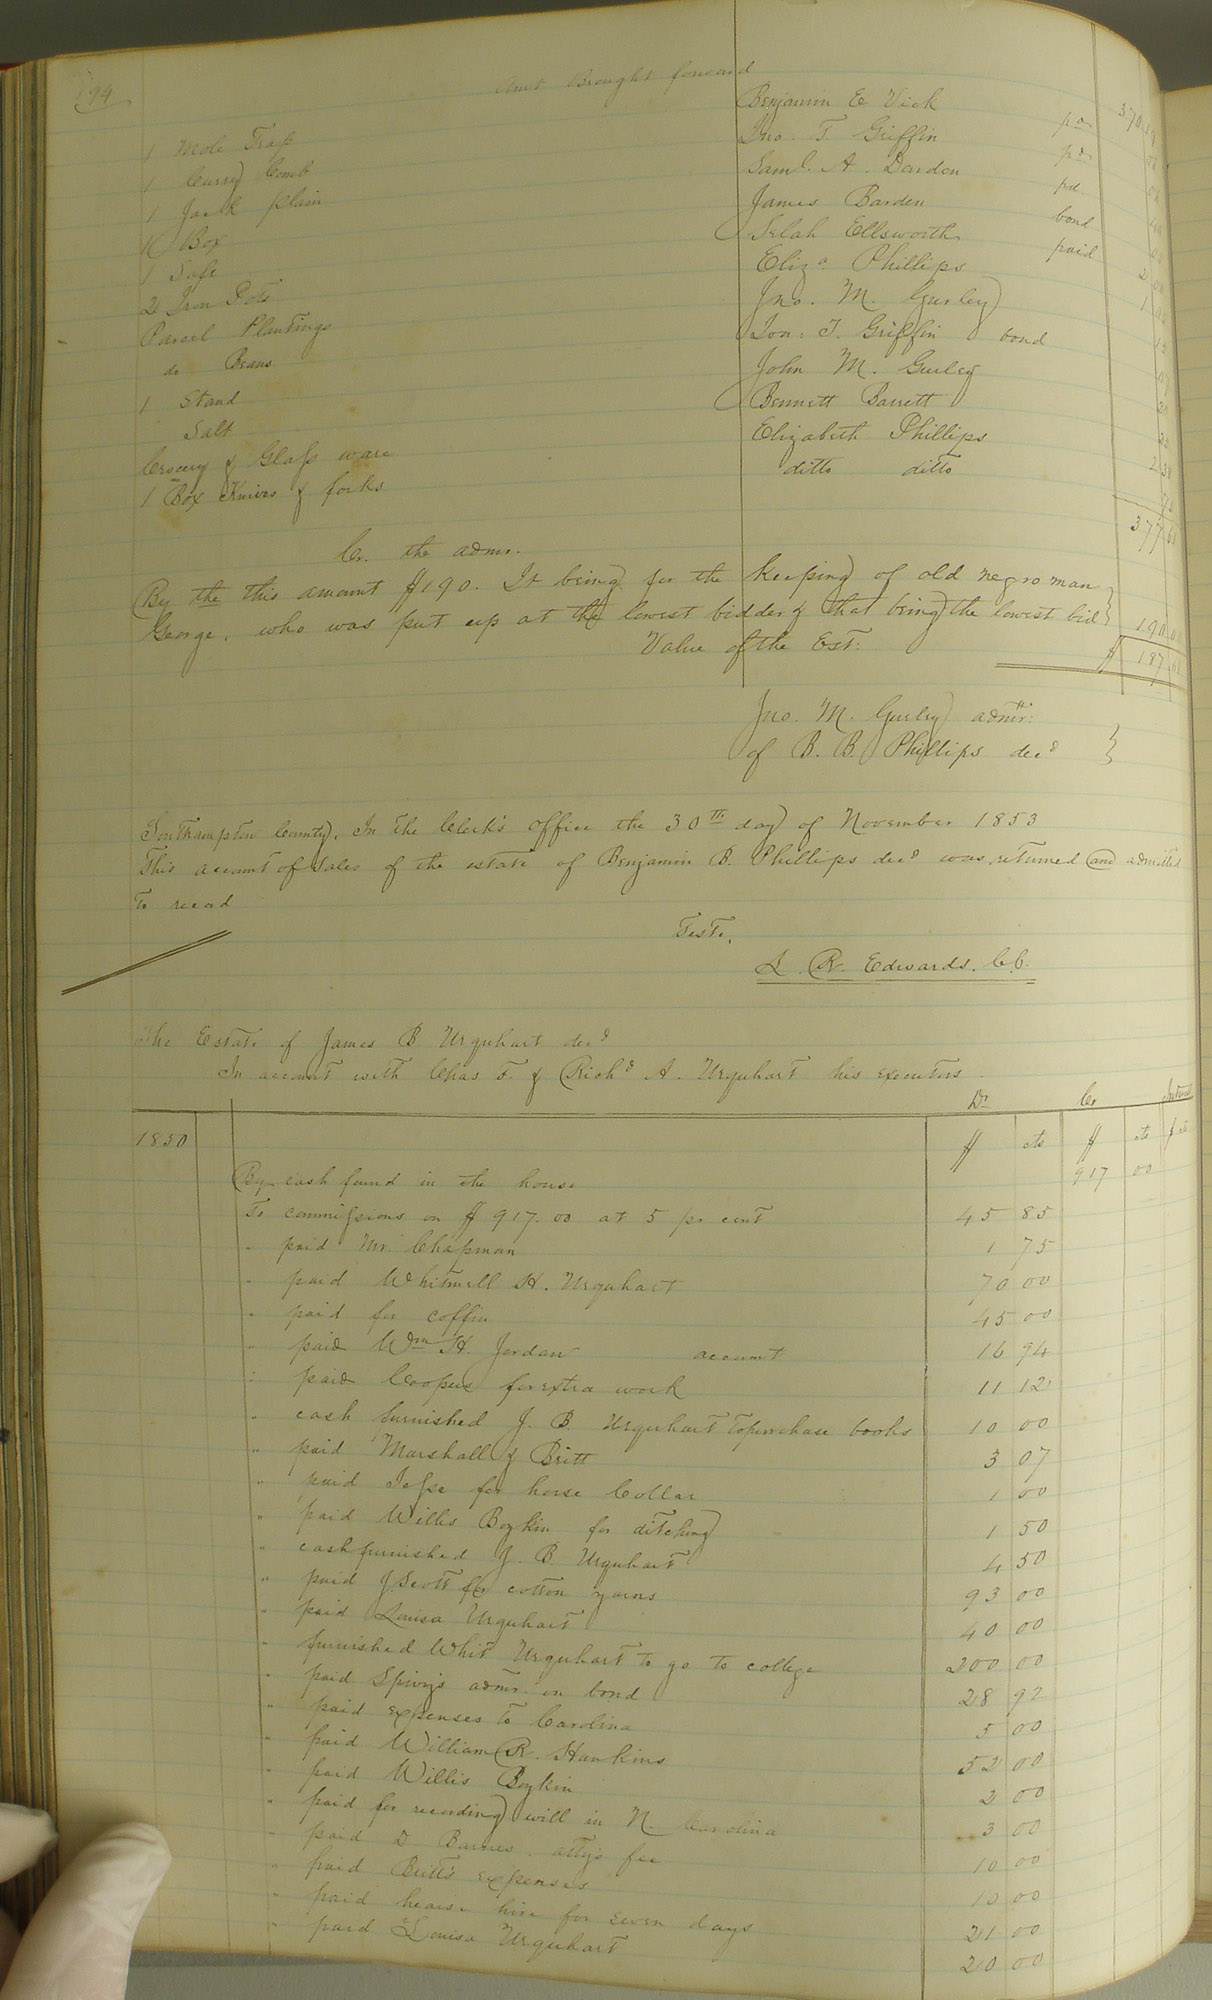 194
Amt Brought forward 370
1 Mole Trap Benjamin E Vick pd
1 Curry Comb Jno. T. Griffin pd
1 Jack plain Saml. A. Darden pd
1 Box James Barden bond
1 Safe Selah Ellsworth paid
2 Iron Pots Eliza Phillips
Parcel Plantings Jno. M. Gurley
do Beans Jon: T. Griffin bond
1 Stand John M. Gurley
Salt Bennett Barrett
Crocery & Glass ware Elizabeth Phillips
1 Box Knives & forks ditto ditto
377
Cr. the admr.
By the this amount $190. It being for the keeping of old negro man
George, who was put up at the lowest bidder & that being the lowest bid 190
Value of the Est: $ 187
Jno. M. Gurley admr:
of B. B. Phillips decd
Southampton County, In the Clerk's office the 30th day of November 1853
This account of sales of the estate of Benjamin B. Phillips decd was returned and admitted
to record
Teste,
L. R. Edwards. C.C.
The Estate of James B Urquhart decd
In account with Chas F. & Richd A. Urquhart his executors
Dr Cr
1850 $ cts $ cts
By cash found in the house 917 00
To commissions on $917.00 at 5 pr cent 45 85
" paid Mr. Chapman 1 75
" paid Whitmell H. Urquhart 70 00
" paid for coffin 45 00
" paid Wm H. Jordan account 16 94
" paid Coopers for extra work 11 12
" cash furnished J. B. Urquhart to purchase books 10 00
" paid Marshall & Britt 3 07
" paid Jesse for horse Collar 1 00
" paid Willis Boykin for ditching 1 50
" cash furnished J. B. Urquhart 4 50
" paid J. Scott for cotton yarns 93 00
" paid Louisa Urquhart 40 00
" furnished Whit Urquhart to go to college 200 00
" paid Spivy's admr. on bond 28 92
" paid expenses to Carolina 5 00
" paid William R. Hawkins 52 00
" paid Willis Boykin 2 00
" paid for recording will in N. Carolina 3 00
" paid D Barnes. attys fee 10 00
" paid Britt's expenses 10 00
" paid hearse hire for seven days 21 00
" paid Louisa Urquhart 20 00